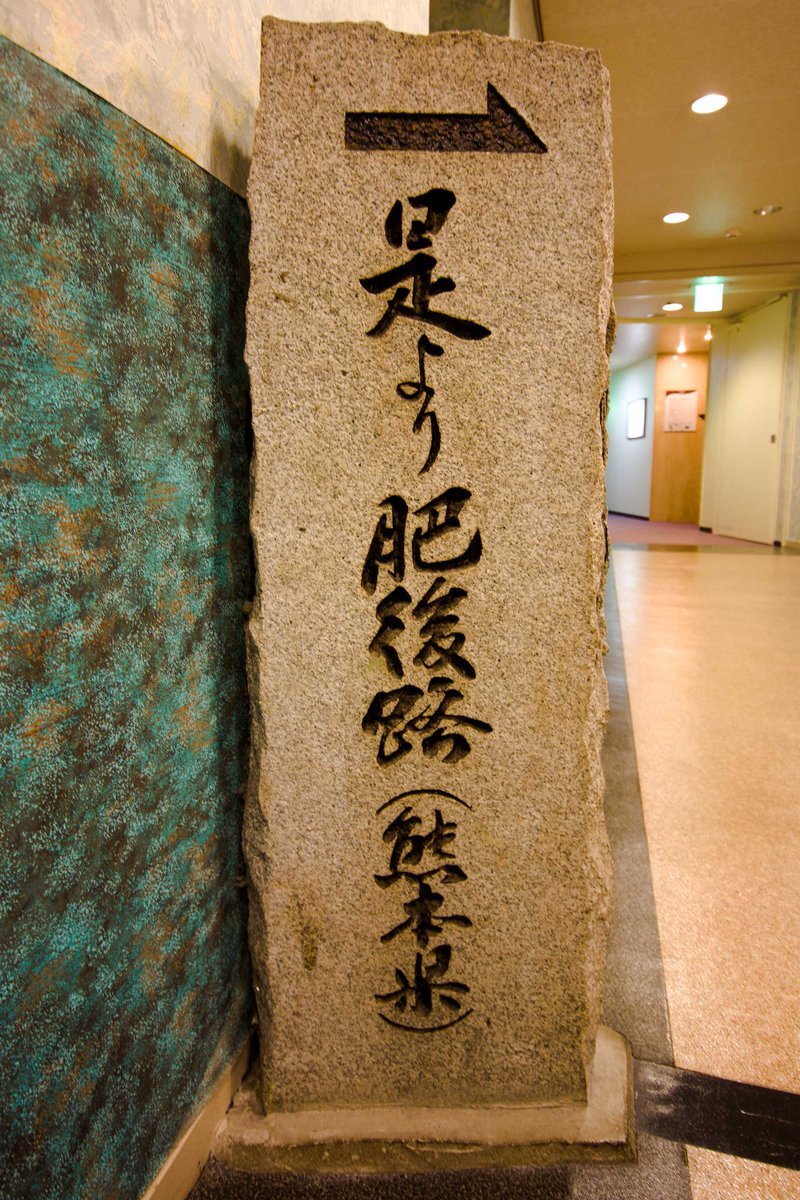 是より肥後路(熊本県)